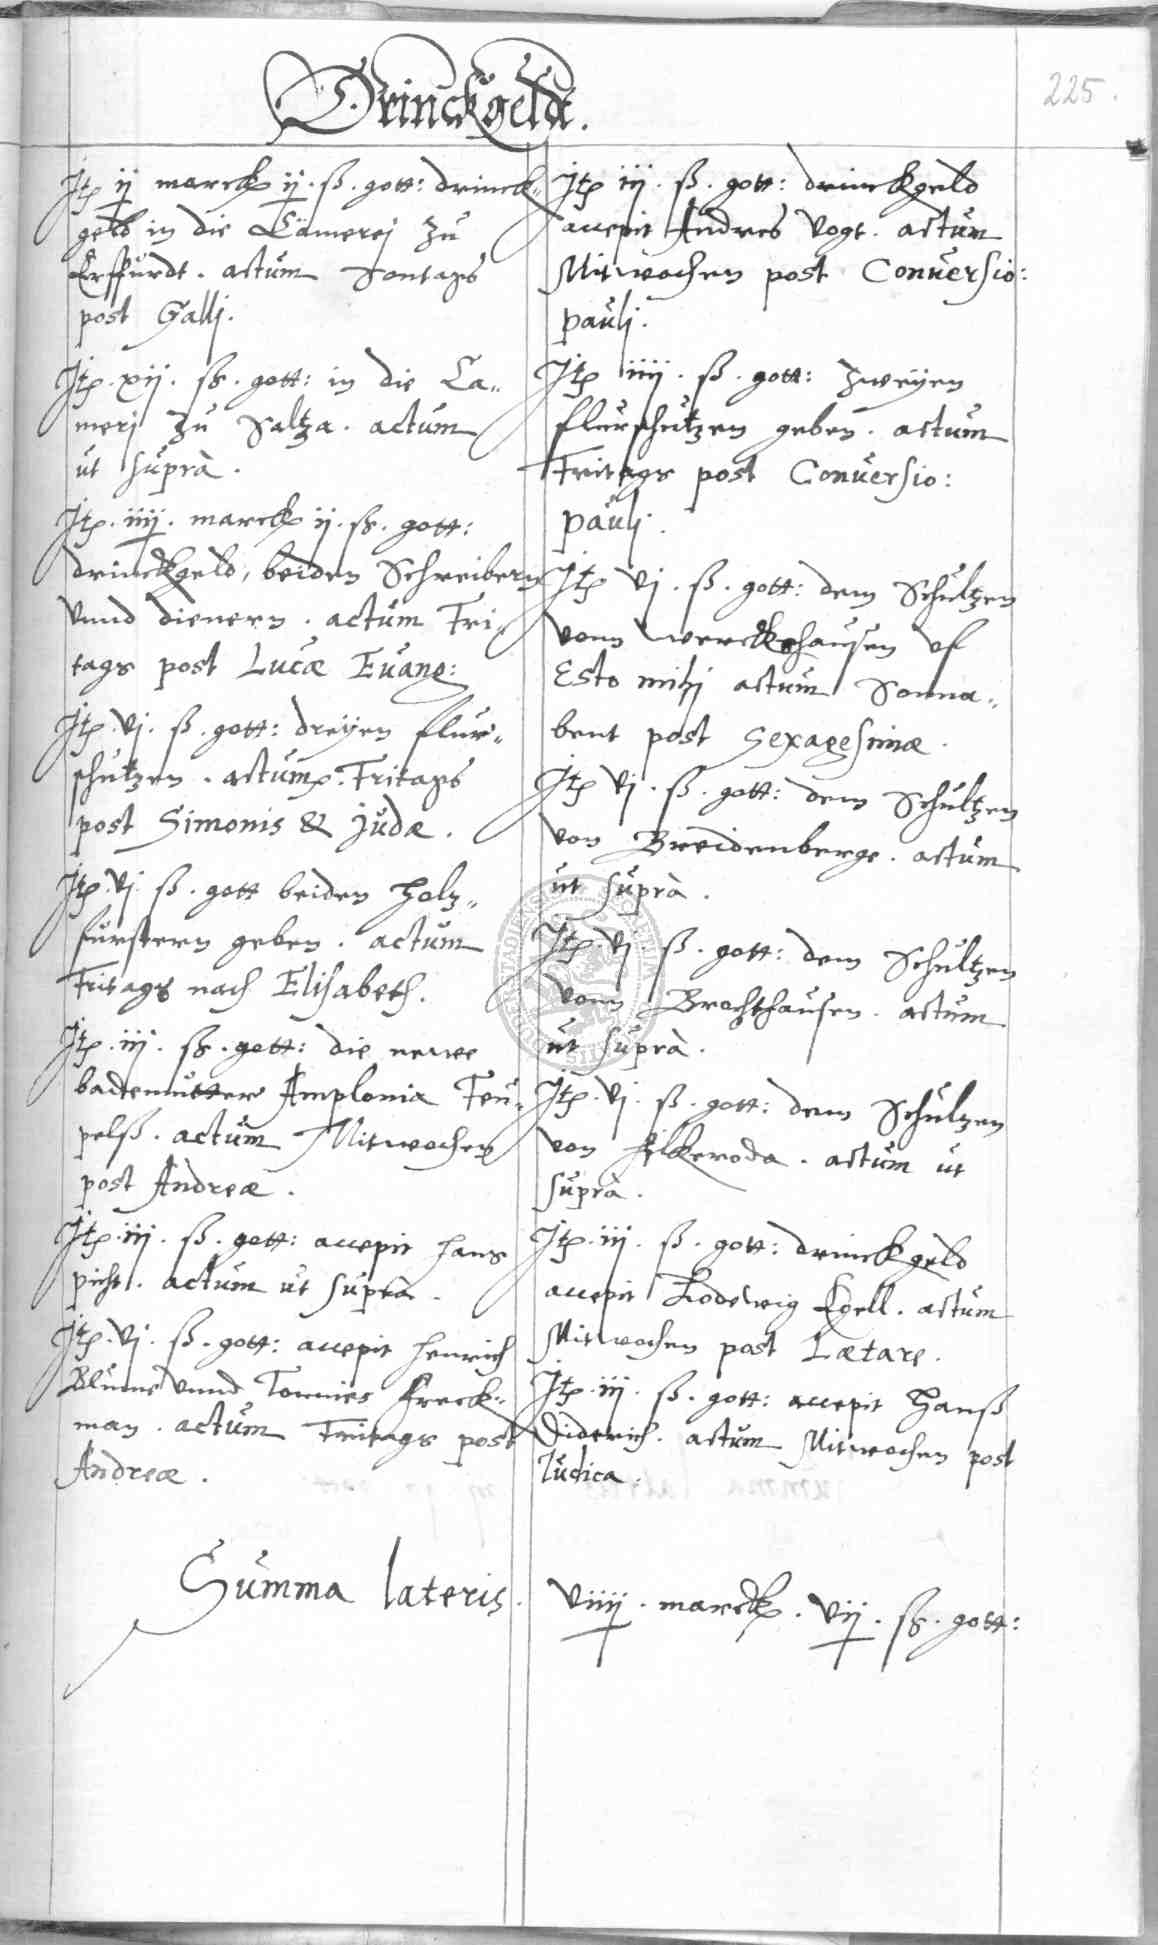 225.
Drinckgeldt.
Itp ij marck ij. ß. gott: drinck-
geld in die Cämerej zu
Erffurdt. actum Sontags
post Gallj.
Itp. xij. ß. gott: in die Ca-
merj zu Saltza. actum
ut suprà.
Itp. iiij. marck ij. ß. gott:
drinckgeld, beiden Schreibern
vnnd dienern. actum Fri-
tags post Lucæ Euang:
Itp. vj. ß. gott: dreyen flur-
schutzen. actum Fritags
post Simonis & Judæ.
Itp. vj. ß. gott beiden holz-
furstern geben. actum
Fritags nach Elisabeth.
Itp. iij. ß. gott: die newe
bademutter Amplonia Teu-
pelß. actum Mitwochen
post Andreæ.
Itp. iij. ß. gott: accepit hans
picht. actum ut suprà.
Itp. vj. ß. gott: accepit henrich
Blume vnnd Tonnies Freck-
man. actum Fritags post
Andreæ.
Itp iij. ß. gott: drinckgeld
accepit Andres Vogt. actum
Mitwochen post Conuersio:
paulj.
Itp iiij. ß. gott: zweyen
flurschutzen geben. actum
Fritags post Conuersio:
paulj.
Itp vj. ß. gott: dem Schultzen
vonn werckshausen vf
Esto mihj actum Sonna-
bent post Sexagesimæ.
Itp vj. ß. gott: dem Schultzen
von Breidenberge. actum
ut suprà.
Itp. vj. ß. gott: dem Schultzen
vonn Brochthausen. actum
ut suprà.
Itp. vj. ß. gott: dem Schultzen
von Hilkeroda. actum ut
suprà.
Itp. iij. ß. gott: drinckgeld
accepit Lodewig Ebell. actum
Mitwochen post Lætare.
Itp. iij. ß. gott: accepit Hanß
Diderich. actum Mitwochen post
Iudica.
Summa lateris. viiij. marck. vij. ß. gott: